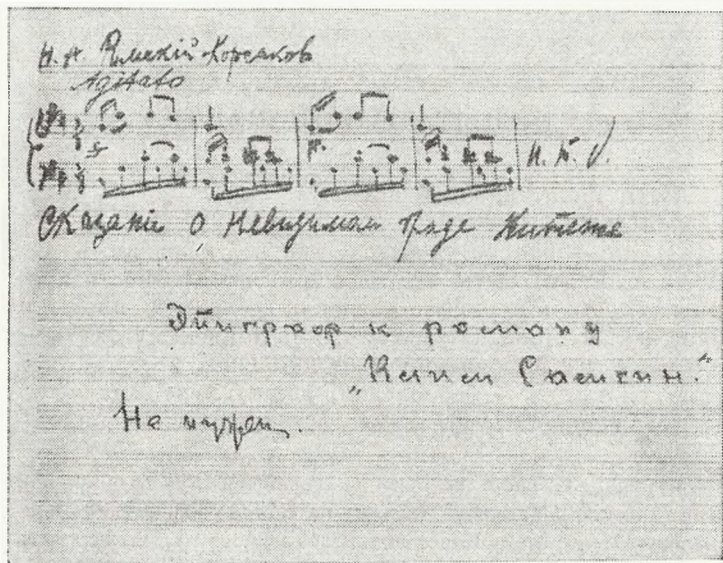 Н. А. Римскій-Корсаков
Agitato
Сказаніе о невидимом граде Китеже
Эпиграф к роману
„Клим Самгин."
Не нужен.